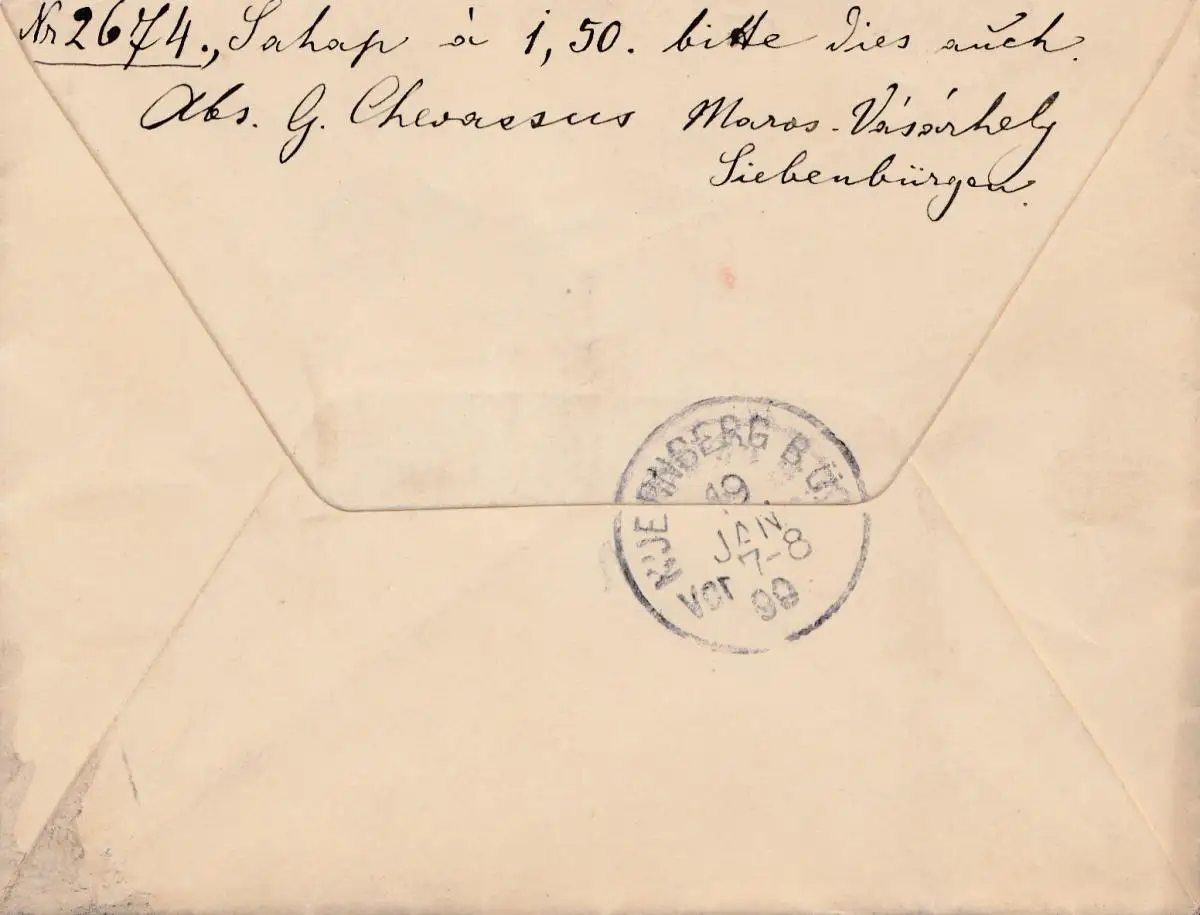 Nr 2674., Sahap à 1,50. bitte dies auch.
Abs. G. Chevassus Maros-Vásárhely
Siebenbürgen.
NBERG B.
19
JAN.
7-8
99